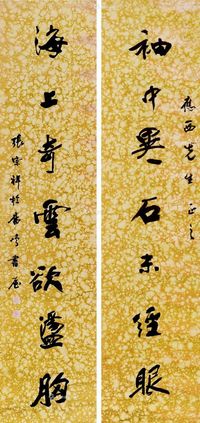 應西先生正之
袖中異石未經眼
海上奇雲欲盪胸
張宗祥書屋